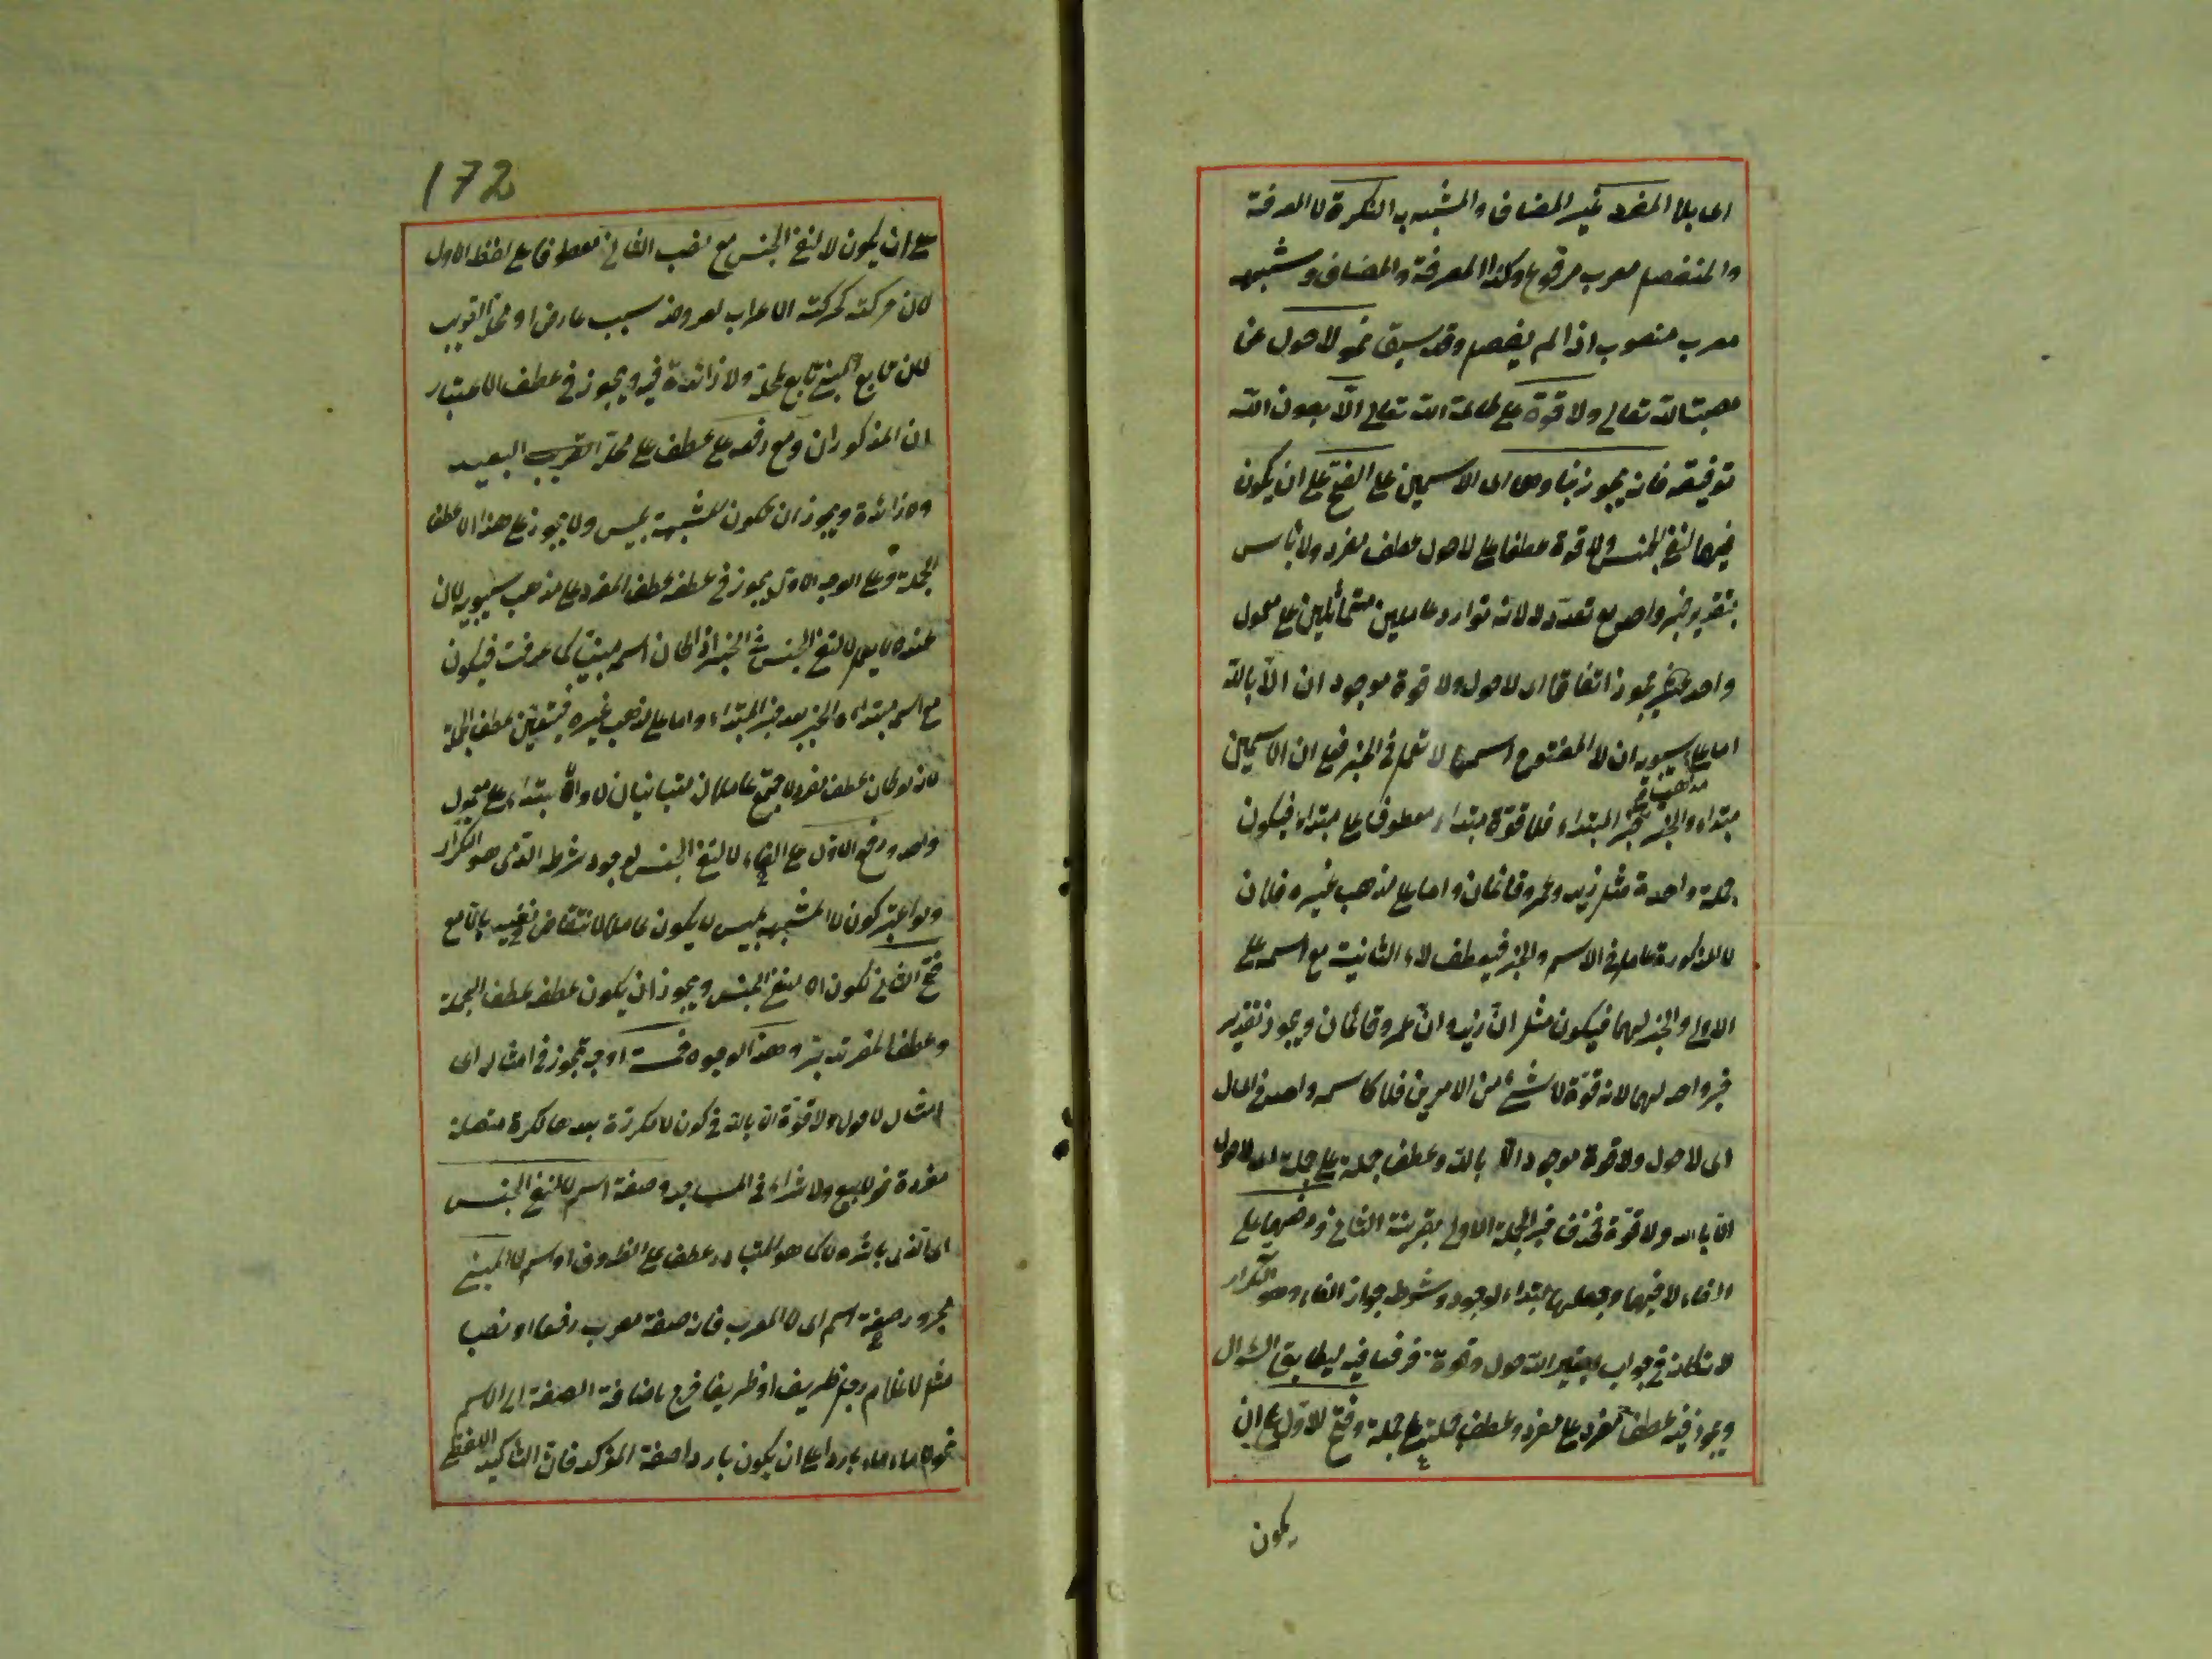 اى بلا المفرد غير المضاف والمشبه به النكرة لا المعرفة
والمنفصل معرب مرفوع وكذا المعرفة والمضاف وشبهه
معرب منصوب اذا لم يفصل وقد سبق نحو لا حول عن
معصية الله تعالى ولا قوة على طاعة الله تعالى الا بعون الله
توفيقه فانه يجوز بناؤهما اى الاسمين على الفتح على ان يكون
فيهما لنفى الجنس ولا قوة عطفا على لا حول عطف مفرد ولا بأس
بتقدير خبر واحد مع تعدد لا لانه توارد عاملين متماثلين على معمول
واحد فيجوز اتفاقا اى لا حول ولا قوة موجود ان الا بالله
اما على سيبويه ان لا المفتوح اسمها لا تعمل فى الخبر فعلى ان الاسمين
مذهب
مبتداء والخبر خبر المبتداء فلا قوة مبتداء معطوف على مبتداء فيكون
جملة واحدة مثل زيد وعمرو قائمان واما على مذهب غيره فلان
لا المذكورة عامل فى الاسم والخبر فيعطف لاء الثانية مع اسمه على
الاولى والخبر لهما فيكون مثل ان زيد وان عمرو قائمان ويجوز تقدير
خبر واحد لهما لانه قوة لا شئ من الامرين فلا كاسم واحد فى الحال
اى لا حول ولا قوة موجود الا بالله وعطف جملة على جملة اى لا حول
الا بالله ولا قوة فحذف خبر الجملة الاولى بقرينة الثانى ورفعهما على
الغاء لا فيهما وجعلهما مبتداء لوجود شرط جواز الغاء وهو التكرار
لانه كان فى جواب بغير الله حول وقوة فرفعا فيه ليطابق السؤال
ويجوز فيه عطف مفرد على مفرد وعطف جملة على جملة وفتح الاول على ان
يكون
172
على ان يكون لا لنفى الجنس مع نصب الثانى معطوفا على لفظ الاول
لان حركته كحركته الاعراب لعروضه بسبب عارض او محله القريب
لان تابع المبنى تابع لمحله ولا زائدة فيه ويجوز فى عطف الاعتبار
ان المذكوران ومع رفعه على عطف على محله القريب البعيد
ولا زائدة ويجوز ان يكون لا المشبهة بليس ولا يجوز على هذا الا عطف
الجملة وعلى الوجه الاول يجوز فى عطفه عطف المفرد على مذهب سيبويه لان
عنده لا يعمل لا لنفى الجنس فى الخبر اذا كان اسمه مبنيا كما عرفت فيكون
مع اسمه مبتداء والخبر بعد خبر المبتداء واما على مذهب غيره فيتعين عطف الجملة
لانه لو كان عطف مفرد لاجتمع عاملان متباينان لا والابتداء على معمول
واحد ورفع الاول على الغاء لا لنفى الجنس لوجود شرطه الذى هو التكرار
ولو اعتبر كون لا المشبهة بليس لا يكون عاملا لانتقاض نفيه بالا مع
فتح الثانى لكون لا لنفى الجنس ويجوز ان يكون عطفه عطف الجملة
وعطف المفرد وهذه الوجوه خمسة اوجه تجوز فى امثاله اى
امثال لا حول ولا قوة الا بالله فى كون لا مكررة بعدها نكرة متصلة
مفردة نحو لا بيع ولا شراء فى المسجد وصفة اسم لا لنفى الجنس
اى الذى باشره لا كما هو المتبادر عطف على الظروف او اسم لا المبنى
مجرور صفة اسم اى لا المعرب فان صفة معرب رفعا او نصبا
مثل لا غلام رجل ظريف او ظريفا خرج باضافة الصفة الى الاسم
نحو لا ماء ماء باردا على ان يكون باردا صفة المؤكد فان التاكيد اللفظى